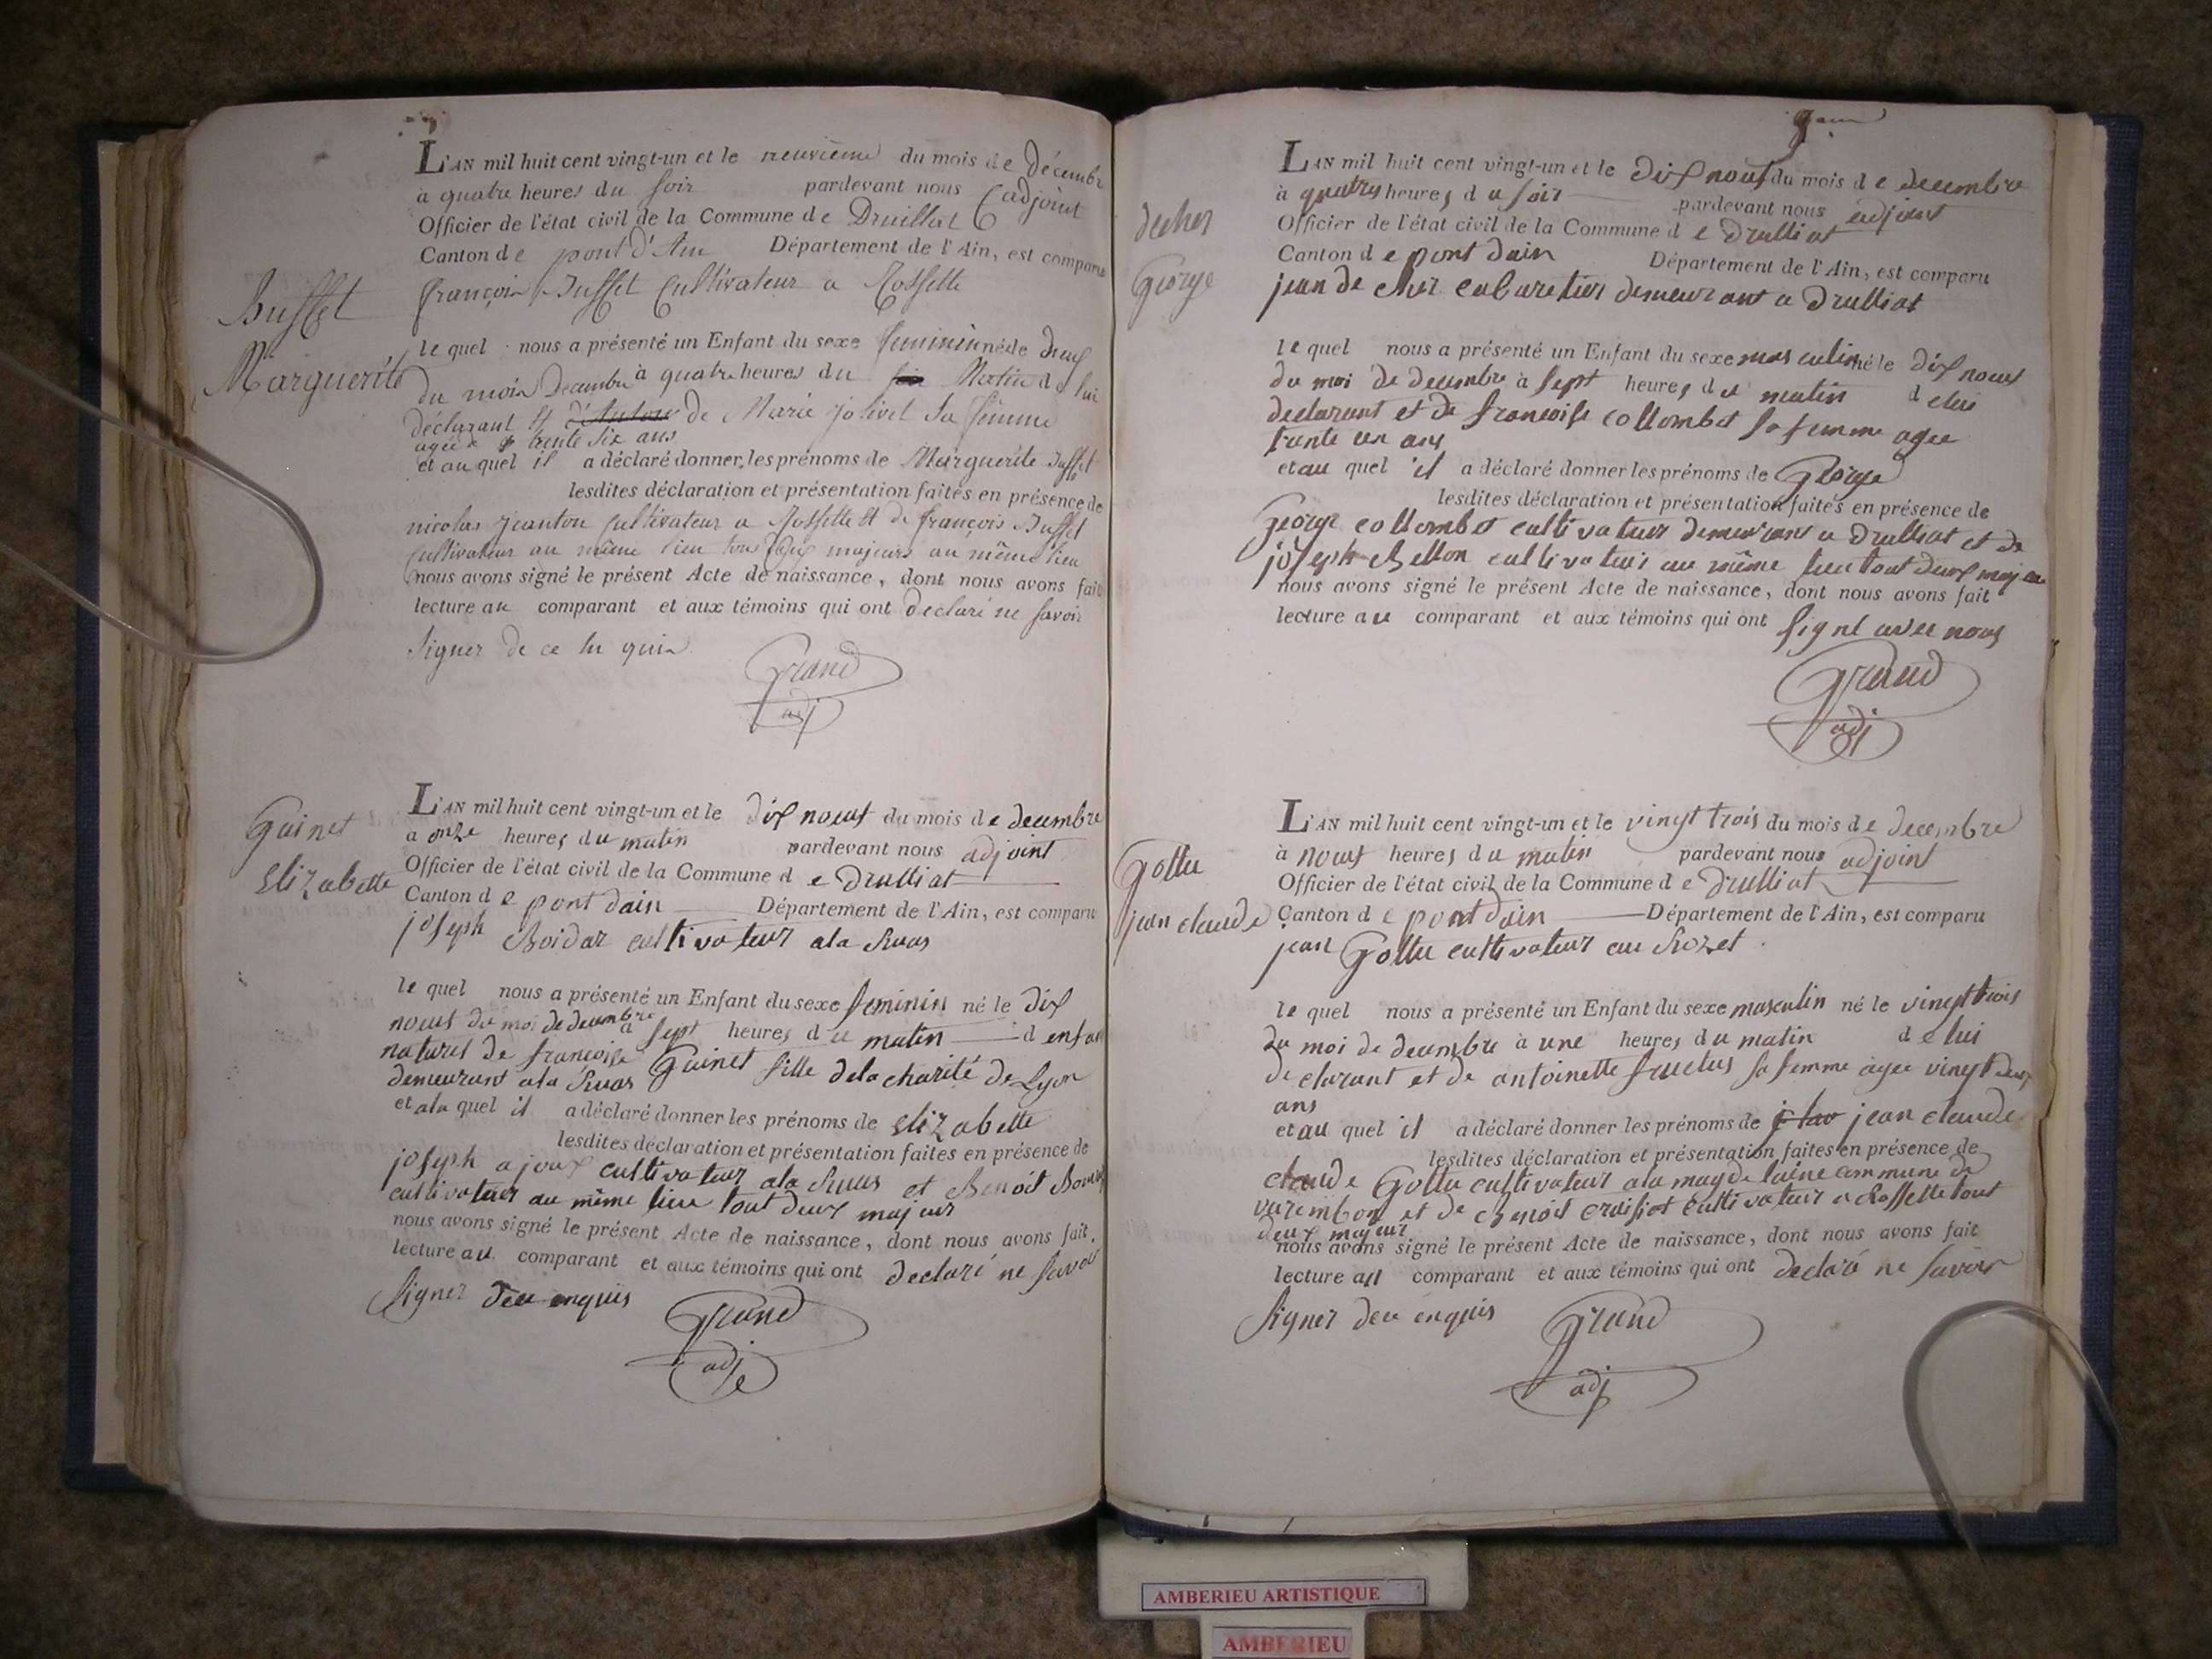 Buffet
Marguerite
L'AN mil huit cent vingt-un et le neuvieme du mois de décembre
à quatre heures du soir pardevant nous adjoint
Officier de l'état civil de la Commune de Druillat
Canton de pont d'Ain Département de l'Ain, est comparu
françois Buffet Cultivateur a Rossette
le quel nous a présenté un Enfant du sexe feminin né de
du mois Decembre à quatre heures du Matin de lui
déclarant et de Marie jolivet sa femme
agée de trente six ans
et au quel il a déclaré donner les prénoms de Marguerite Buffet
lesdites déclaration et présentation faites en présence de
nicolas jeanton Cultivateur a Rossette et de françois Buffet
Cultivateur au même lieu tous deux majeurs au même lieu
nous avons signé le présent Acte de naissance, dont nous avons fait
lecture au comparant et aux témoins qui ont declaré ne savoir
signer de ce
Grand
adj
Guinet
Elizabette
L'AN mil huit cent vingt-un et le dix neuf du mois de decembre
à onze heures du matin pardevant nous adjoint
Officier de l'état civil de la Commune de Drulliat
Canton de pont dain Département de l'Ain, est comparu
joseph Boidar cultivateur ala Ruas
le quel nous a présenté un Enfant du sexe feminin né le dix
neuf du moi de decembre à sept heures du matin d enfan
naturel de françoise Guinet fille dela charité de Lyon
demeurant ala Ruas
et ala quel il a déclaré donner les prénoms de Elizabette
lesdites déclaration et présentation faites en présence de
joseph ajoux cultivateur ala Ruas et Benoit
cultivateur au même lieu tout deux majeur
nous avons signé le présent Acte de naissance, dont nous avons fait
lecture au comparant et aux témoins qui ont declaré ne savoir
signer deu enquis
Grand
adj
decher
George
L'AN mil huit cent vingt-un et le dix neuf du mois de decembre
à quatre heures du soir pardevant nous adjoint
Officier de l'état civil de la Commune de Drulliat
Canton de pont dain Département de l'Ain, est comparu
jean de cher cabaretier demeurant a Drulliat
le quel nous a présenté un Enfant du sexe masculin né le dix neuf
du moi de decembre à sept heures du matin de lui
declarant et de francoise collombet sa femme agee
trente un ans
et au quel il a déclaré donner les prénoms de George
lesdites déclaration et présentation faites en présence de
George collombet cultivateur demeurant a Drulliat et de
joseph Bellon cultivateur au même lieu tout deux majeu
nous avons signé le présent Acte de naissance, dont nous avons fait
lecture au comparant et aux témoins qui ont signé avec nous
Grand
adj
Gottu
jean claude
L'AN mil huit cent vingt-un et le vingt trois du mois de decembre
à neuf heures du matin pardevant nous adjoint
Officier de l'état civil de la Commune de Drulliat
Canton de pont dain Département de l'Ain, est comparu
jean Gottu cultivateur au Rozet
le quel nous a présenté un Enfant du sexe masculin né le vingt trois
du moi de decembre à une heures du matin de lui
declarant et de antoinette fructus sa femme agee vingt deux
ans
et au quel il a déclaré donner les prénoms de jean claude
lesdites déclaration et présentation faites en présence de
claude Gottu cultivateur ala magdelaine commune de
varembon et de Benoit croisiat cultivateur a Rossette tout
deux majeur
nous avons signé le présent Acte de naissance, dont nous avons fait
lecture au comparant et aux témoins qui ont declaré ne savoir
signer deu enquis
Grand
adj
AMBERIEU ARTISTIQUE
AMBERIEU